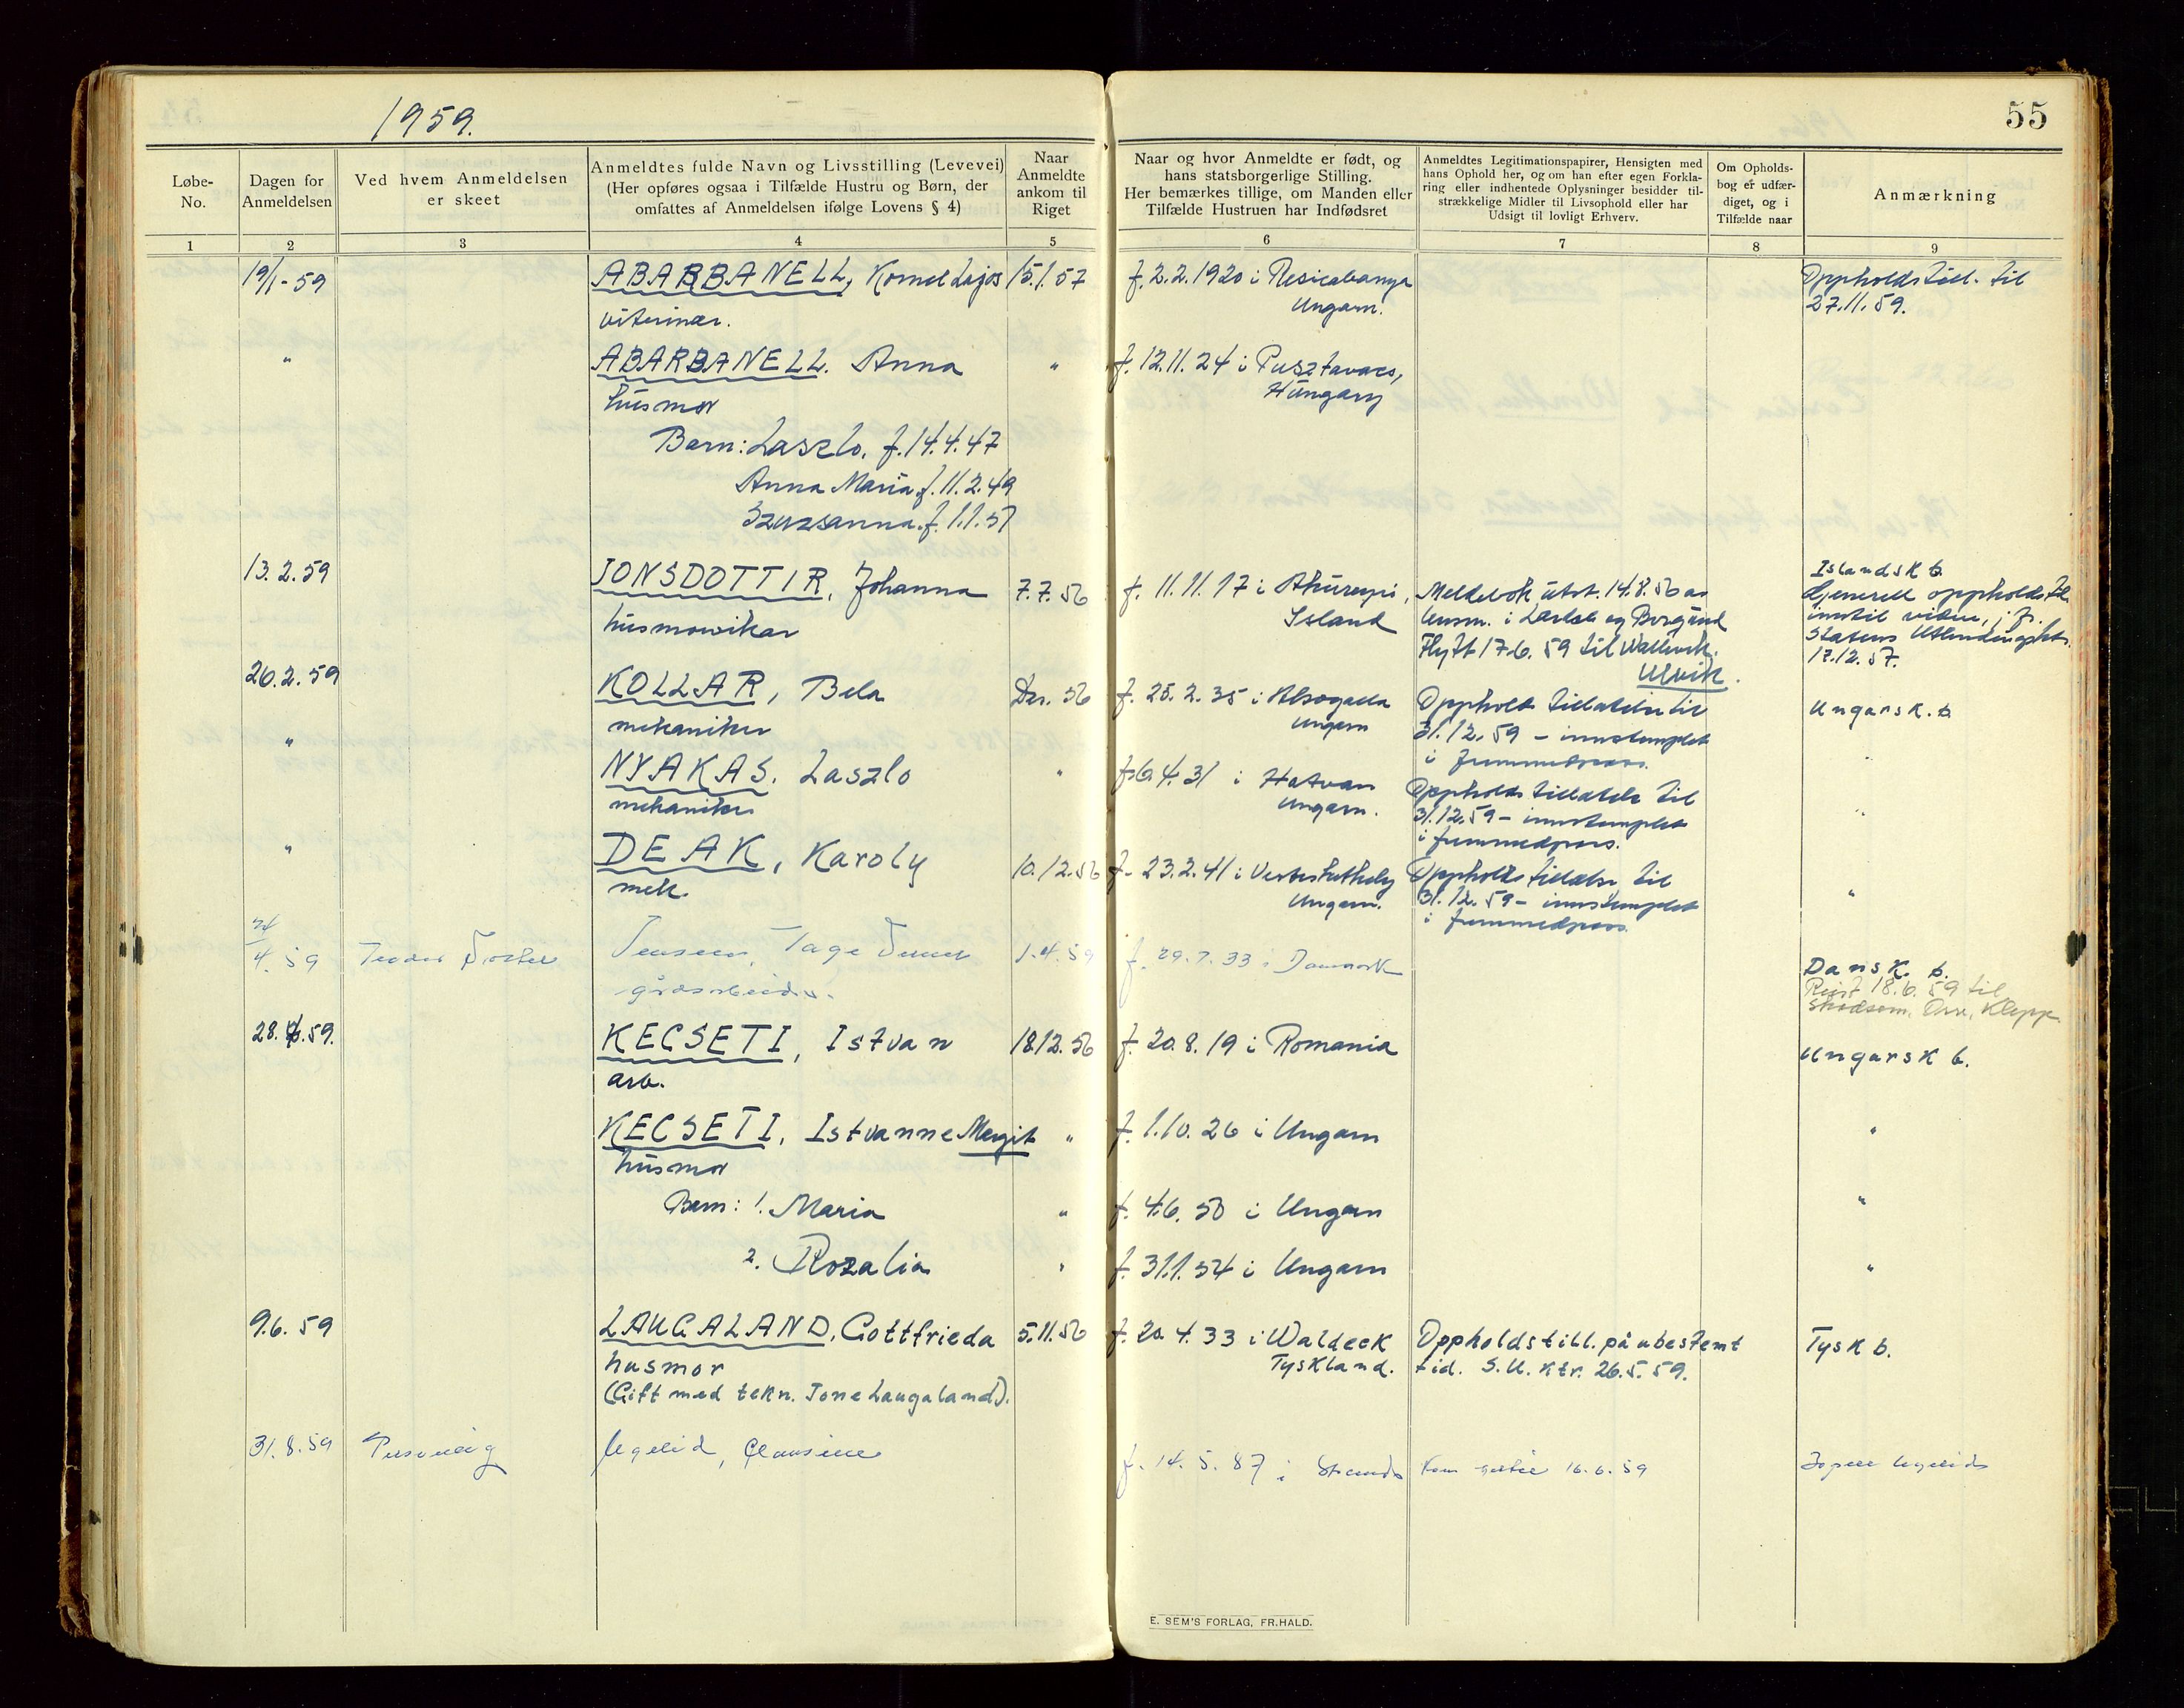 1959.
55
Løbe-
No.
Dagen for
Anmeldelsen
Ved hvem Anmeldelsen
er skeet
Anmeldtes fulde Navn og Livsstilling (Levevei)
(Her opføres ogsaa i Tilfælde Hustru og Børn, der
omfattes af Anmeldelsen ifølge Lovens § 4)
Naar
Anmeldte
ankom til
Riget
Naar og hvor Anmeldte er født, og
hans statsborgerlige Stilling.
Her bemærkes tillige, om Manden eller
Tilfælde Hustruen har Indfødsret
Anmeldtes Legitimationspapirer, Hensigten med
hans Ophold her, og om han efter egen Forkla-
ring eller indhentede Oplysninger besidder til-
strækkelige Midler til Livsophold eller har
Udsigt til lovligt Erhverv.
Om Opholds-
bog er udfær-
diget, og i
Tilfælde naar
Anmærkning
1 2 3 4 5 6 7 8 9
19/1-59 ABARBANELL, Kornel Lajos 15.1.57 f. 2.2.1920 i Resicabanya Oppholdstill. til
viterinær. Ungarn. 27.11.59.
" ABARBANELL. Anna " f. 12.11.24 i Pusztavacs,
husmor Hungary
Barn: Laszlo. f. 14.4.47
Anna Maria f. 11.2.49
Szuzsanna. f. 1.1.57
13.2.59 JONSDOTTIR, Johanna 7.7.56 f. 11.11.17 i Akureyri, Meldebok utst. 14.8.56 av Islandsk b.
husmorvikar Island lensm. i Lærdal og Borgund Generell oppholdstill.
Flytt 17.6.59 til inntil videre, j fr.
Ulvik. Statens Utlendingsktr.
17.12.57.
26.2.59 KOLLAR, Bela Des. 56 f. 25.2.35 i Ungarn Oppholds tillatelse til Ungarsk. b.
mekaniker 31.12.59 - innstemplet
i fremmedpass.
" NYAKAS. Laszlo " f. 6.4.31 i Hatvan Oppholds tillatelse til "
mekaniker Ungarn. 31.12.59 - innstemplet
i fremmedpass.
" DEAK, Karoly 10.12.56 f. 23.2.41 i Ungarn. Oppholds tillatelse til "
mek. 31.12.59 - innstemplet
i fremmedpass.
4.59 Jensen, Tage 1.4.59 f. 29.7.33 i Danmark Dansk. b.
gårdsarbeider. Reist 18.6.59 til
Orre, Klepp.
28.4.59. KECSETI, Istvan 18.12.56 f. 20.8.19 i Romania Ungarsk b.
arb.
KECSETI, Istvanne Margit " f. 1.10.26 i Ungarn "
husmor
Barn: 1. Maria " f. 4.6.50 i Ungarn "
2. Rozalia " f. 31.1.54 i Ungarn "
9.6.59 LAUGALAND, Gottfrieda 5.11.56 f. 20.4.33 i Waldeck Oppholdstill. på ubestemt Tysk b.
husmor Tyskland. tid. S.U. ktr. 26.5.59.
(Gift med tekn. Tone Laugaland).
31.8.59 Personlig f. 14.5.87 i Strand 16.6.59
E. SEM'S FORLAG, FR.HALD.